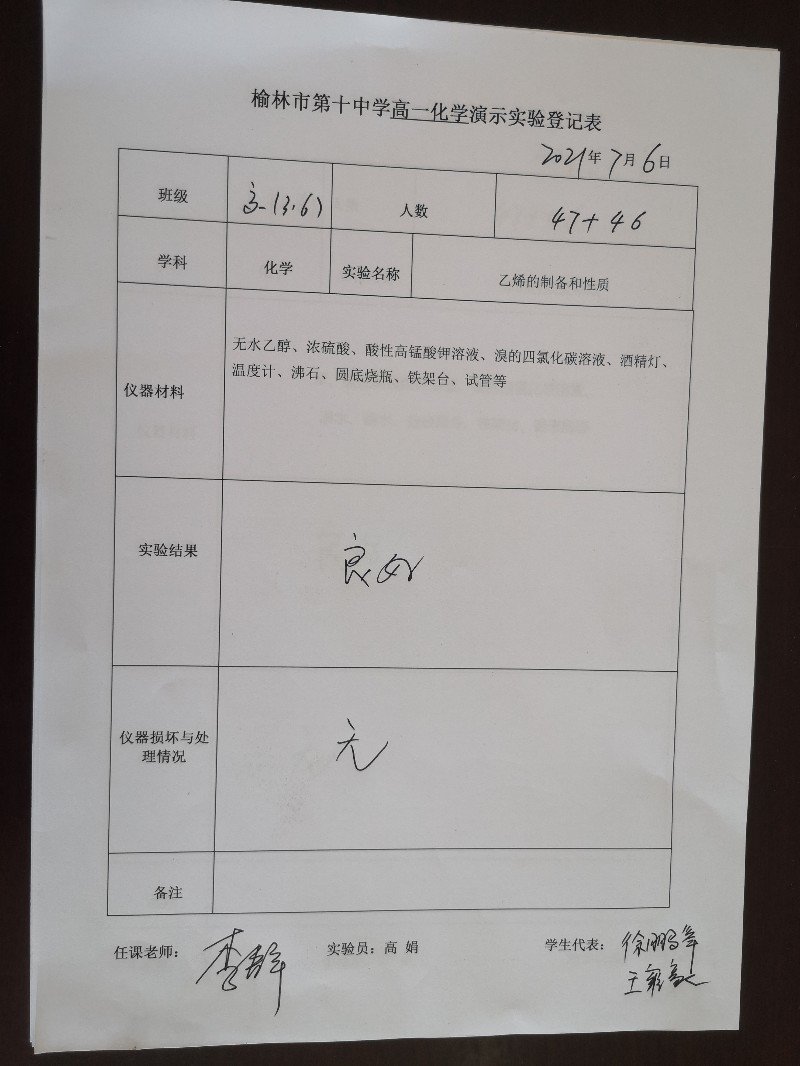 榆林市第十中学高一化学演示实验登记表
2021年7月6日
班级 高一(3.6) 人数 47+46
学科 化学 实验名称 乙烯的制备和性质
无水乙醇、浓硫酸、酸性高锰酸钾溶液、溴的四氯化碳溶液、酒精灯、
仪器材料 温度计、沸石、圆底烧瓶、铁架台、试管等
实验结果 良好
仪器损坏与处
理情况 无
备注
任课老师： 实验员：高 娟 学生代表：